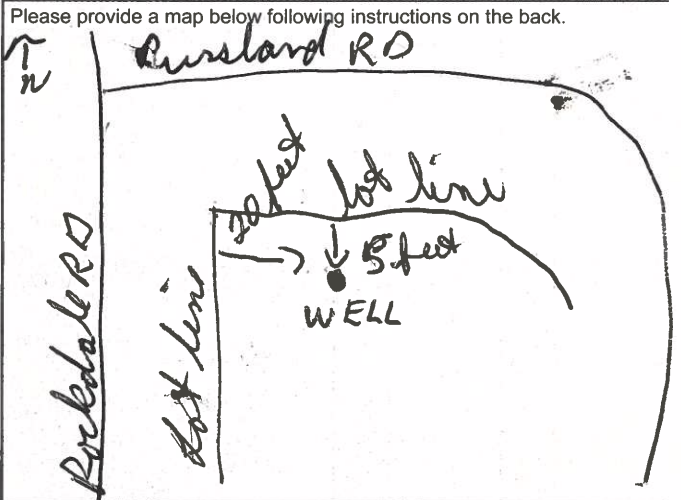 Please provide a map below following instructions on the back.
N
Russland RD
20 feet
lot line
5 feet
WELL
Lot line
Rockdale RD